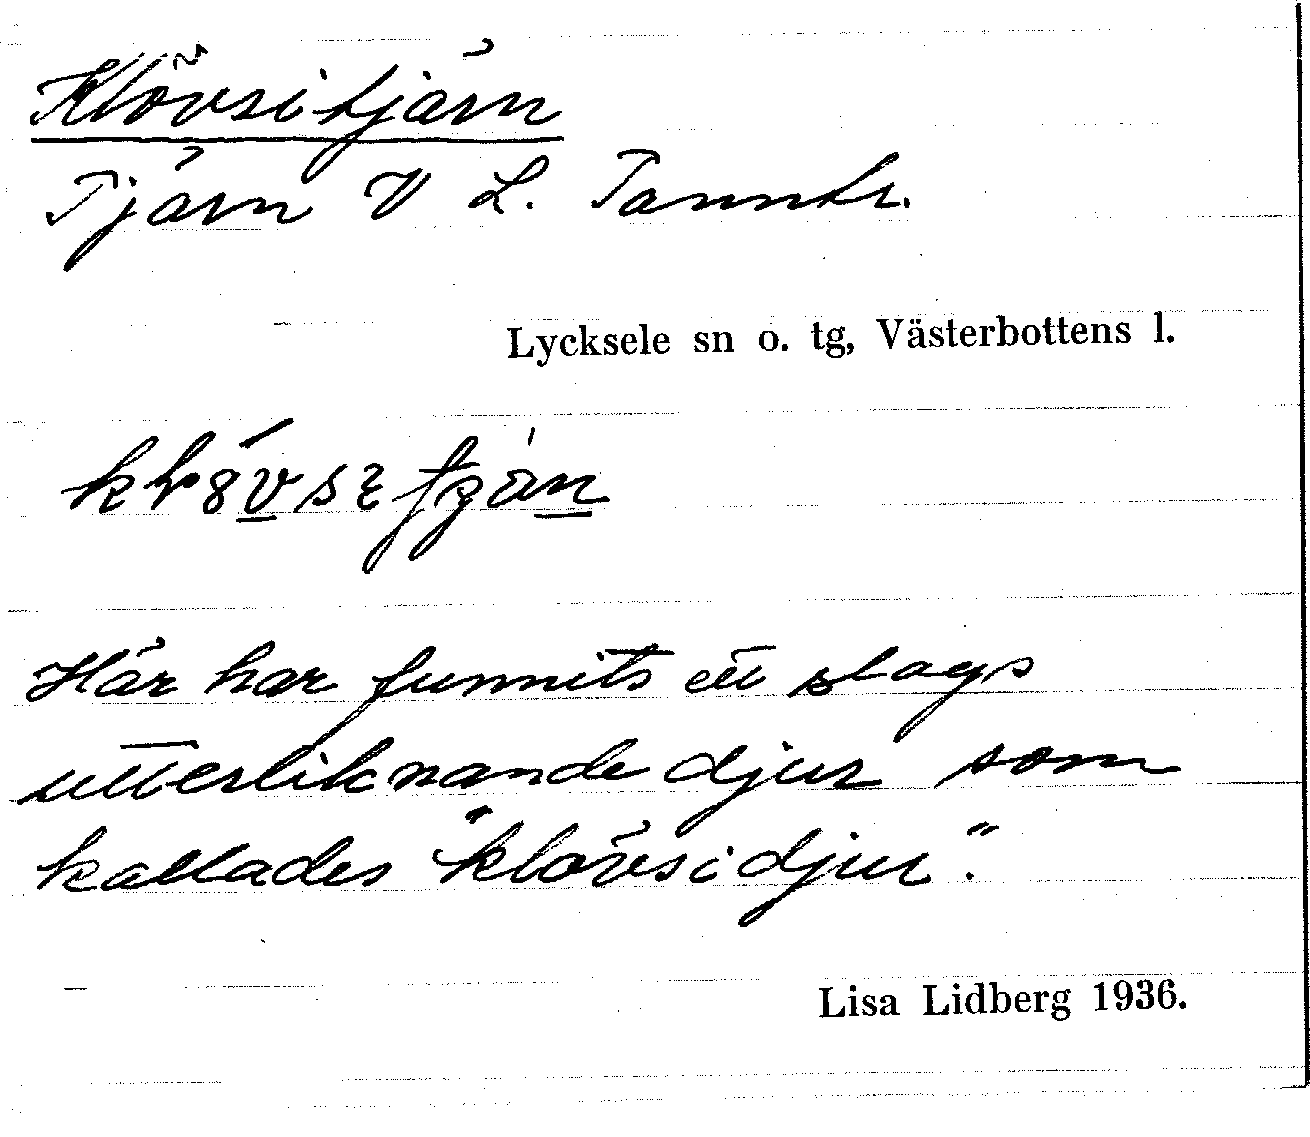 Klövsitjärn
Tjärn V L. Tanntr.
Lycksele sn o. tg, Västerbottens l.
Här har funnits ett slags
utterliknande djur som
kallades "klövsidjur".
Lisa Lidberg 1936.